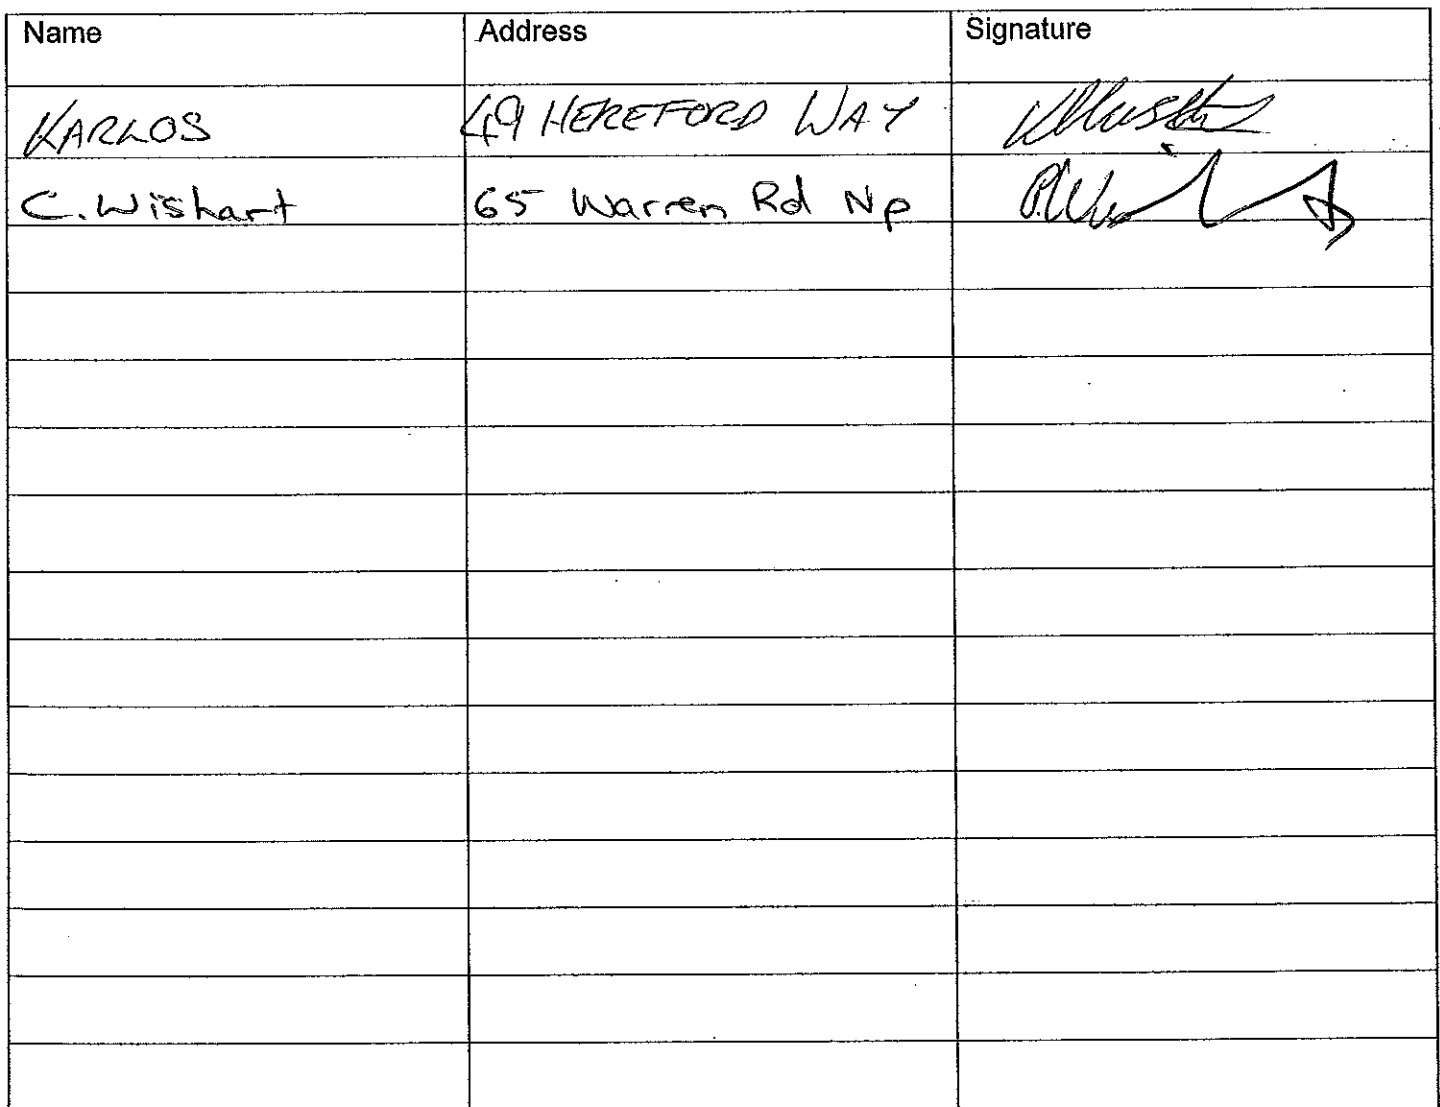 Name Address Signature
KARLOS 49 HEREFORD WAY
C. Wishart 65 Warren Rd Np